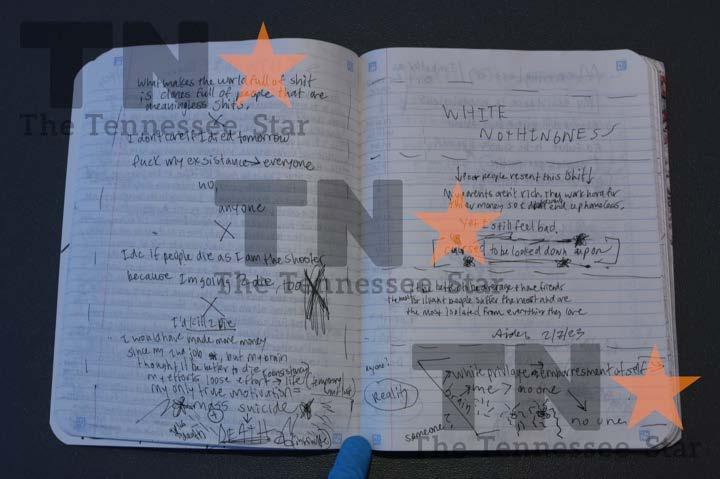 What makes the world full of shit
is clones full of people that are
meaningless shits.
X
I don't care if I died tomorrow
fuck my exsistance → everyone
no,
anyone
X
I dc if people die as I am the shooter
because I'm going to die, too
X
I'd kill 2 die
I would have made more money
since my 2nd job, but my brain
thought it be better to die
my efforts loose effort → life
my only true motivation =
mass suicide
DEATH
(infinite)
WHITE
NOTHINGNESS
↓ Poor people resent this shit ↓
My parents aren't rich, they work hard for
their money so I don't end up homeless.
Yet I still feel bad.
to be looked down upon
better to be average + have friends
the most brilliant people suffer the most and are
the most isolated from everything they love
Aiden 2/7/23
anyone?
Reality
white privilage → embarresment of self
brain
me > no one
no one
someone
TN
The Tennessee Star
TN
The Tennessee Star
TN
The Tennessee Star